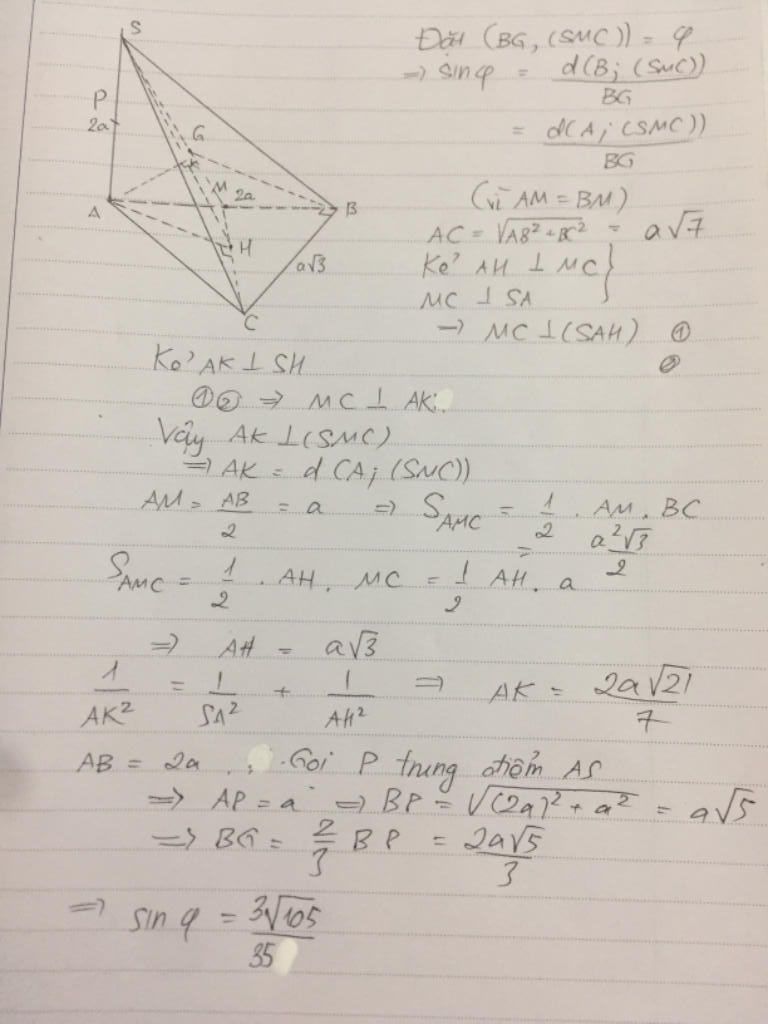 S
P
2a
G
K
M
2a
A
B
H
a√3
C
Đặt (BG, (SMC)) = φ
=> sin φ = d(B; (SMC)) / BG
= d(A; (SMC)) / BG
(vì AM = BM)
AC = √(AB² + BC²) = a√7
Kẻ AH ⊥ MC }
MC ⊥ SA }
→ MC ⊥ (SAH) ①
Kẻ AK ⊥ SH ②
①② => MC ⊥ AK
Vậy AK ⊥ (SMC)
=> AK = d(A; (SMC))
AM = AB/2 = a => S_AMC = 1/2 . AM . BC
= a²√3/2
S_AMC = 1/2 . AH . MC = 1/2 AH . a
=> AH = a√3
1/AK² = 1/SA² + 1/AH² => AK = 2a√21/7
AB = 2a . Gọi P trung điểm AS
=> AP = a => BP = √((2a)² + a²) = a√5
=> BG = 2/3 BP = 2a√5/3
=> sin φ = 3√105/35